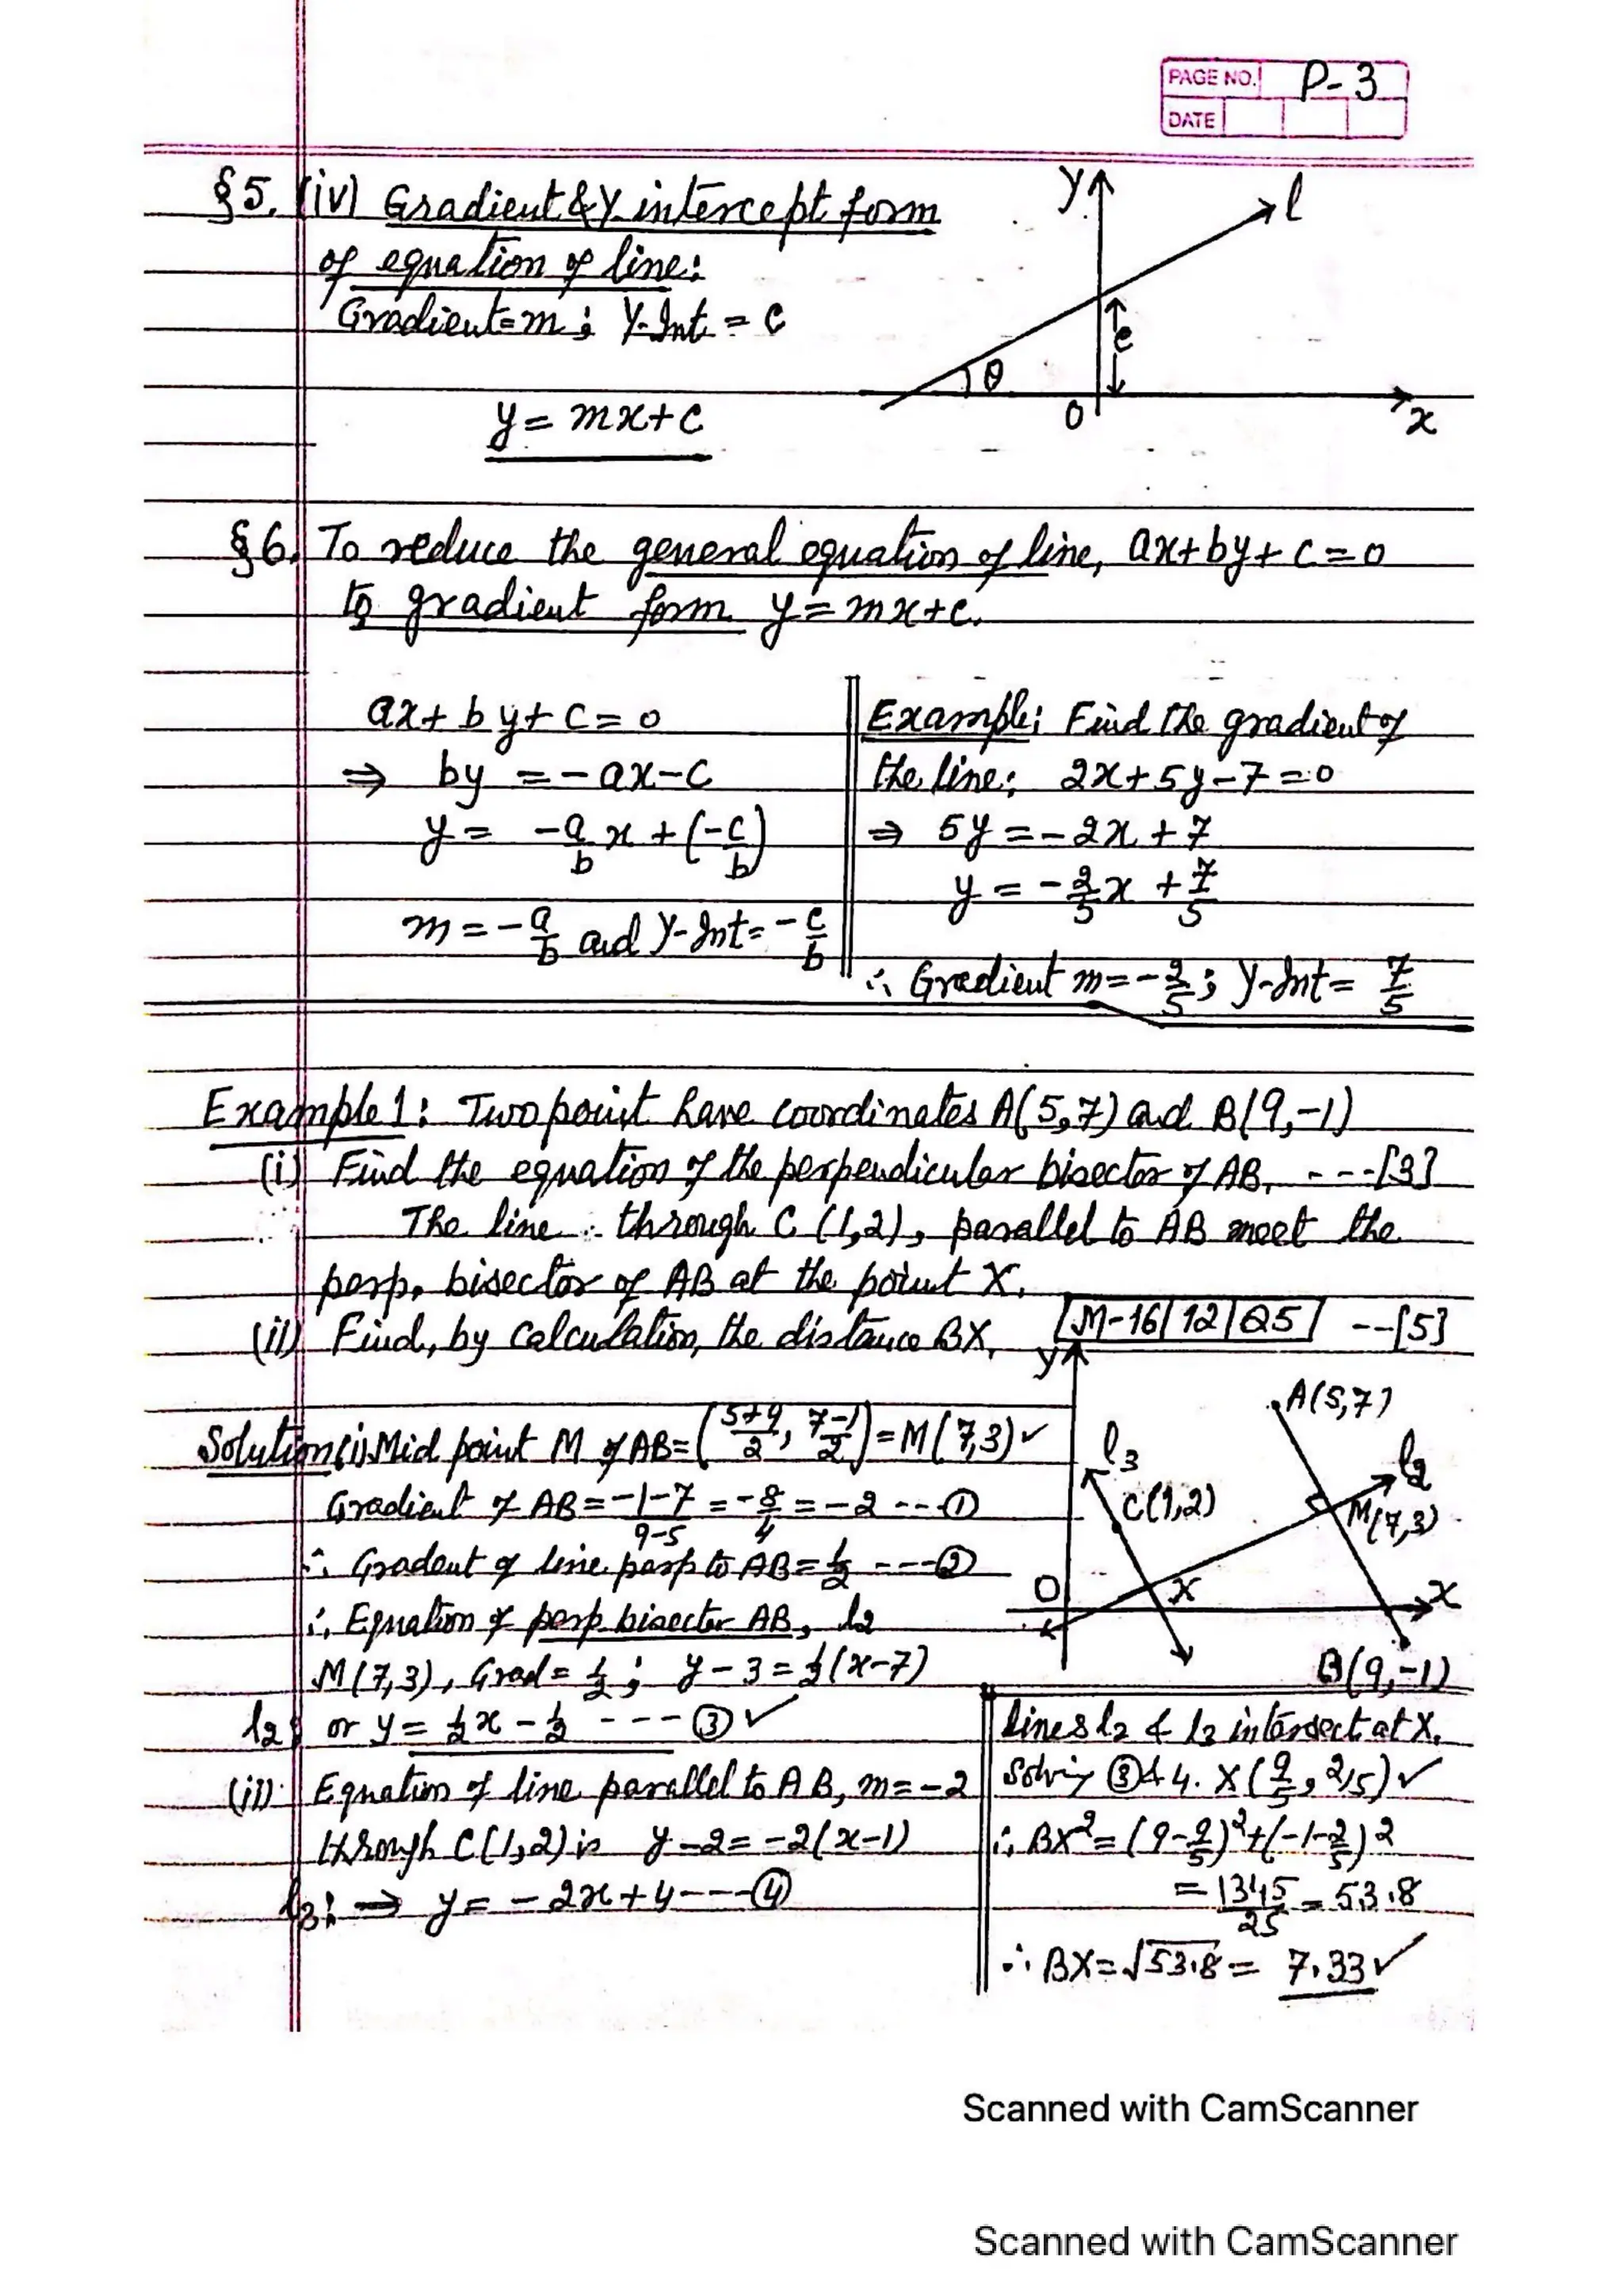 PAGE NO. P-3
DATE
§5. (iv) Gradient & Y intercept form
of equation of line:
Gradient = m ; Y-Int = c
y = mx+c
y
l
c
θ
0
x
§6. To reduce the general equation of line, ax+by+c=0
to gradient form y = mx+c.
ax+by+c=0
⇒ by = -ax-c
y = -a/b x + (-c/b)
m = -a/b and Y-Int = -c/b
Example: Find the gradient of
the line: 2x+5y-7=0
⇒ 5y = -2x+7
y = -2/5 x + 7/5
∴ Gradient m = -2/5 ; Y-Int = 7/5
Example 1: Two point have coordinates A(5,7) and B(9,-1)
(i) Find the equation of the perpendicular bisector of AB. ---[3]
The line through C (1,2), parallel to AB meet the
perp. bisector of AB at the point X.
(ii) Find, by calculation, the distance BX. M-16/12/Q5 --[5]
Solution (i) Mid point M of AB = (5+9/2, 7-1/2) = M(7,3) ✓
Gradient of AB = -1-7/9-5 = -8/4 = -2 --- ①
∴ Gradent of line perp to AB = 1/2 ---- ②
∴ Equation of perp bisector AB, l2
M(7,3), Grad = 1/2 ; y-3 = 1/2(x-7)
l2: or y = 1/2 x - 1/2 ---- ③ ✓
(ii) Equation of line parallel to AB, m = -2
through C(1,2) is y-2 = -2(x-1)
l3: ⇒ y = -2x+4 ---- ④
y
A(5,7)
l3
l2
C(1,2)
M(7,3)
O
X
x
B(9,-1)
lines l2 & l3 intersect at X.
Solving ③ & 4. X(9/5, 2/5) ✓
∴ BX² = (9-9/5)² + (-1-2/5)²
= 1345/25 = 53.8
∴ BX = √53.8 = 7.33 ✓
Scanned with CamScanner
Scanned with CamScanner